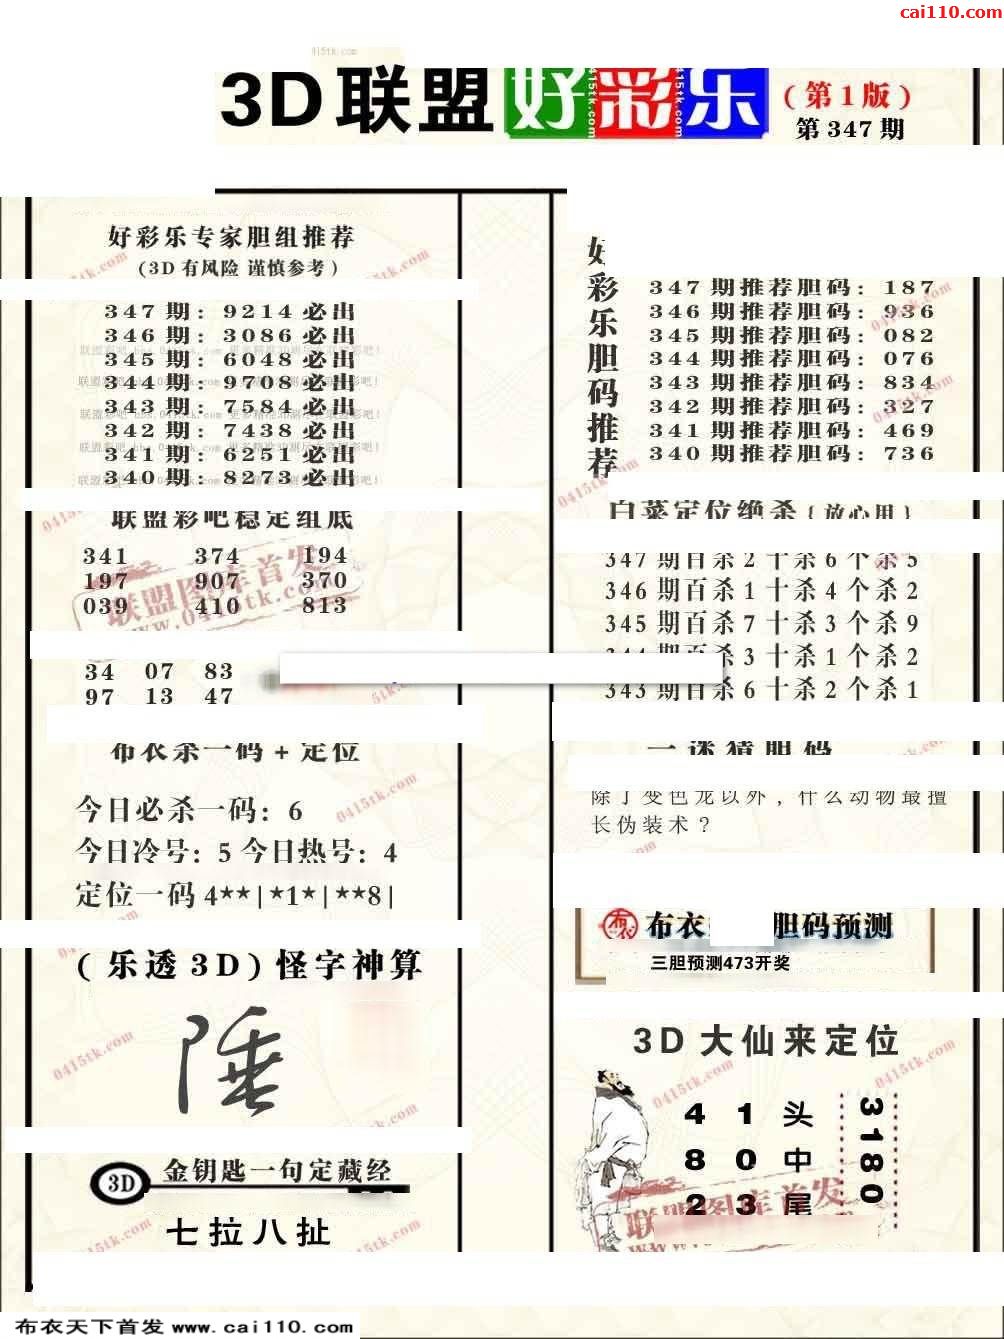 cai110.com
0415tk.com
3D联盟好彩乐
(第1版)
第347期
好彩乐专家胆组推荐
(3D有风险 谨慎参考)
347期: 9214必出
346期: 3086必出
345期: 6048必出
344期: 9708必出
343期: 7584必出
342期: 7438必出
341期: 6251必出
340期: 8273必出
联盟彩吧稳定组底
341 374 194
197 907 370
039 410 813
34 07 83
97 13 47
布衣杀一码+定位
今日必杀一码: 6
今日冷号: 5 今日热号: 4
定位一码4**|*1*|**8|
(乐透3D)怪字神算
3D
金钥匙一句定藏经
七拉八扯
好彩乐胆码推荐
347期推荐胆码: 187
346期推荐胆码: 936
345期推荐胆码: 082
344期推荐胆码: 076
343期推荐胆码: 834
342期推荐胆码: 327
341期推荐胆码: 469
340期推荐胆码: 736
白菜定位绝杀{放心用}
347期百杀2十杀6个杀5
346期百杀1十杀4个杀2
345期百杀7十杀3个杀9
344期百杀3十杀1个杀2
343期百杀6十杀2个杀1
一迷猜胆码
除了变色龙以外, 什么动物最擅
长伪装术?
布衣 胆码预测
三胆预测473开奖
3D大仙来定位
4 1 头
8 0 中
2 3 尾
3180
联盟图库首发
www.0415tk.com
布衣天下首发 www.cai110.com